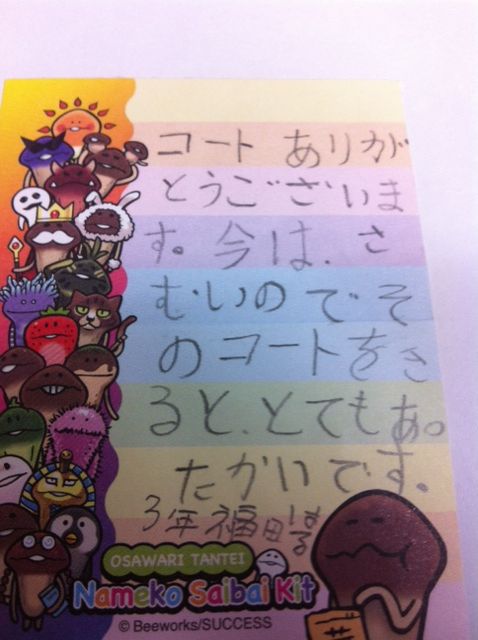 コート ありが
とうございま
す。今は、さ
むいのでそ
のコートをき
ると、とてもあ。
たかいです。
3年 福田
OSAWARI TANTEI
Nameko Saibai Kit
© Beeworks/SUCCESS